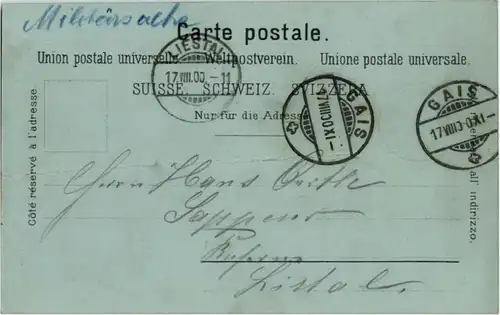 Militärsache
Carte postale.
Union postale universelle. Weltpostverein. Unione postale universale.
SUISSE. SCHWEIZ. SVIZZERA.
Nur für die Adresse
LIESTAL
17.VIII.00.-11
GAIS
17.VIII.00.XI-
GAIS
17.VIII.00.XI-
Côté réservé à l'adresse.
all' indirizzo.
Herrn Hans
Sappeur
Kaserne
Listal.